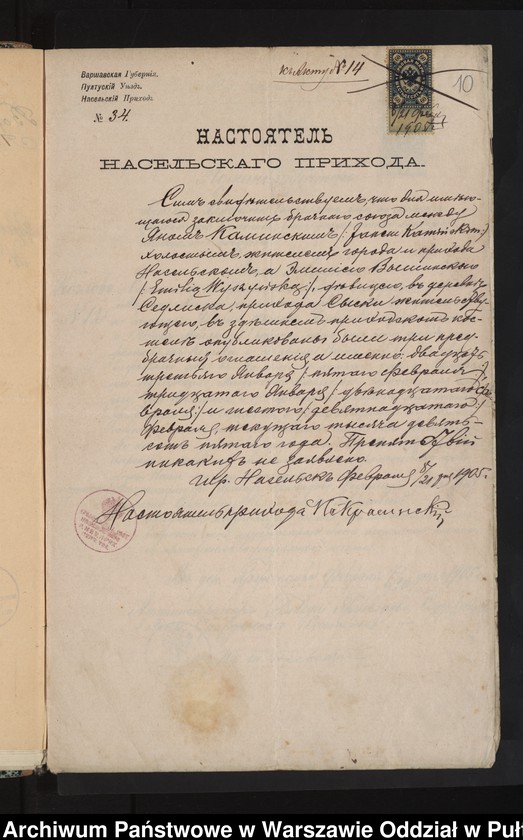 Варшавская Губернія.
Пултускій Уѣздъ.
Насельскій Приходъ.
№ 34.
къ Акту № 14
10
8/21 Февр.
1905
НАСТОЯТЕЛЬ
НАСЕЛЬСКАГО ПРИХОДА.
Симъ свидѣтельствуемъ, что для имѣю-
щагося заключить брачнаго союза между
Яномъ Каминскимъ /: Janem Kamińskim :/
холостымъ, жителемъ города и прихода
Насельскомъ, а Эмиліею
/ Emilią Wyszyńską /, дѣвицею, въ деревнѣ
прихода жительству-
ющею, въ здѣшнемъ приходскомъ кос-
телѣ опубликованы были три пред-
брачныя оглашенія а именно: двадцать
третьяго Января / пятаго Февраля /,
тридцатаго Января /: двѣнадцатаго Фе-
враля :/ и шестого / девятнадцатаго /
Февраля, текущаго тысяча девять-
сотъ пятаго года. Препятствій
никакихъ не заявлено.
гор. Насельскъ Февраля 8/21 дня 1905 г.
Настоятель прихода
Archiwum Państwowe w Warszawie Oddział w Puł